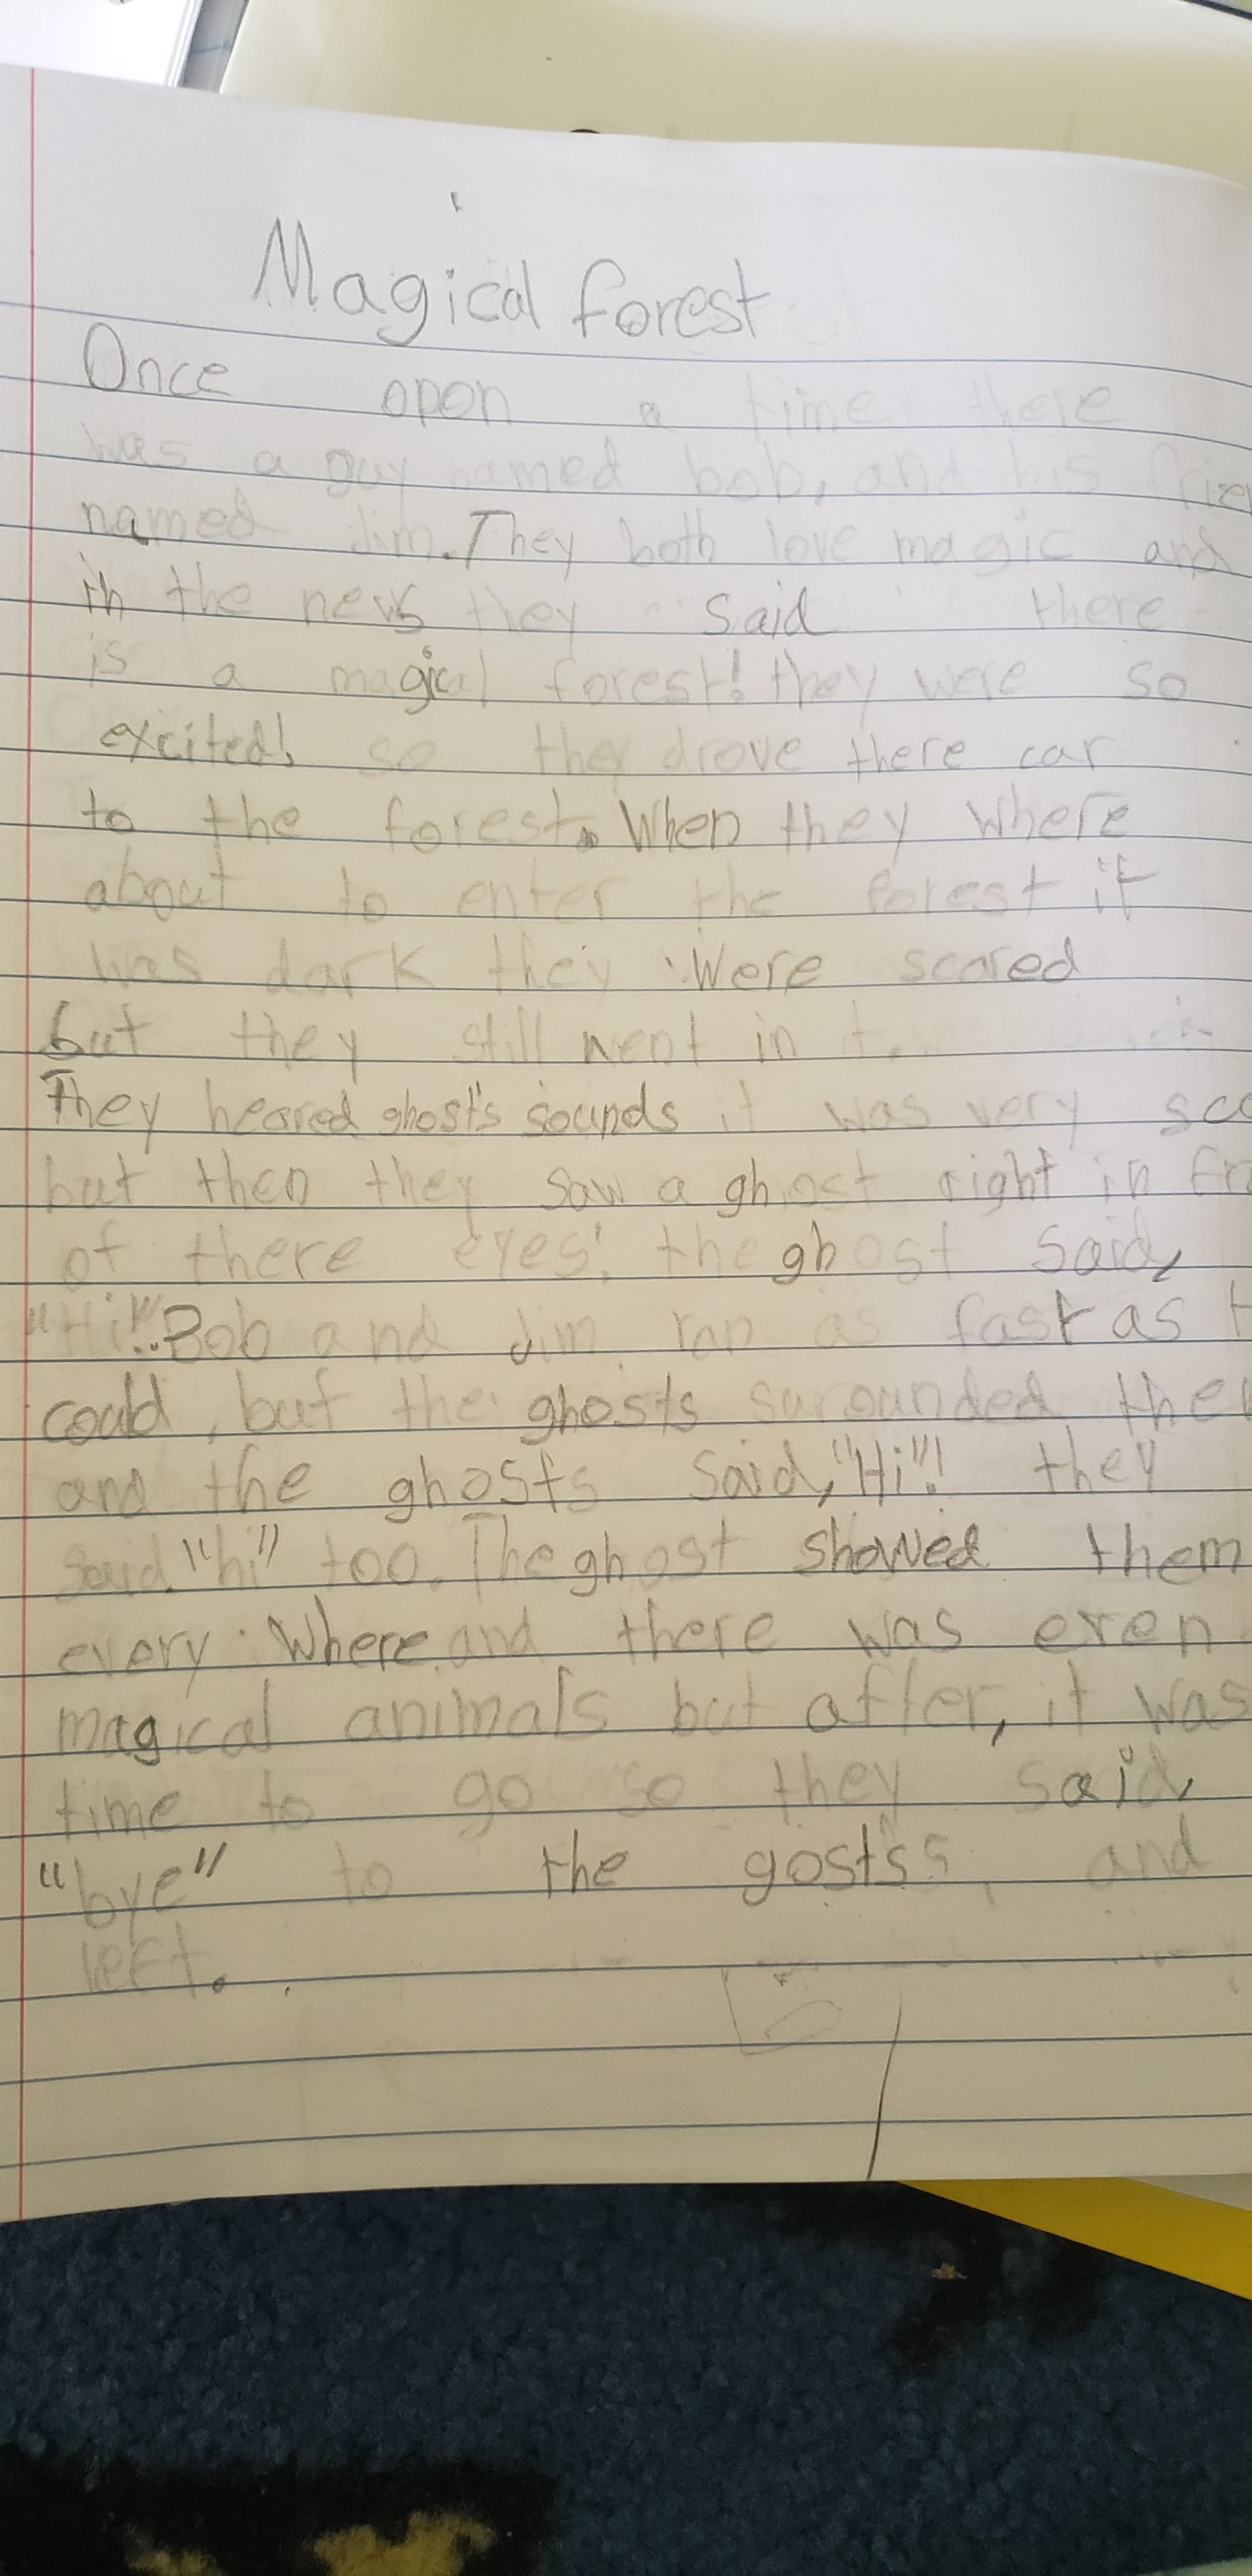 Magical forest
Once opon a time there
was a guy named bob, and his frien
named Jim. They both love magic and
in the news they said there
is a magical forest! they were so
excited! so they drove there car
to the forest. When they where
about to enter the forest it
was dark they were scared
but they still went in it.
They heared ghost's sounds it was very sca
but then they saw a ghost right in fro
of there eyes! the ghost said,
"Hi!". Bob and Jim ran as fast as
could, but the ghosts surounded them
and the ghosts said, "Hi"! they
said "hi" too. The ghost showed them
every where and there was even
magical animals but after, it was
time to go so they said,
"bye" to the gosts's, and
left.